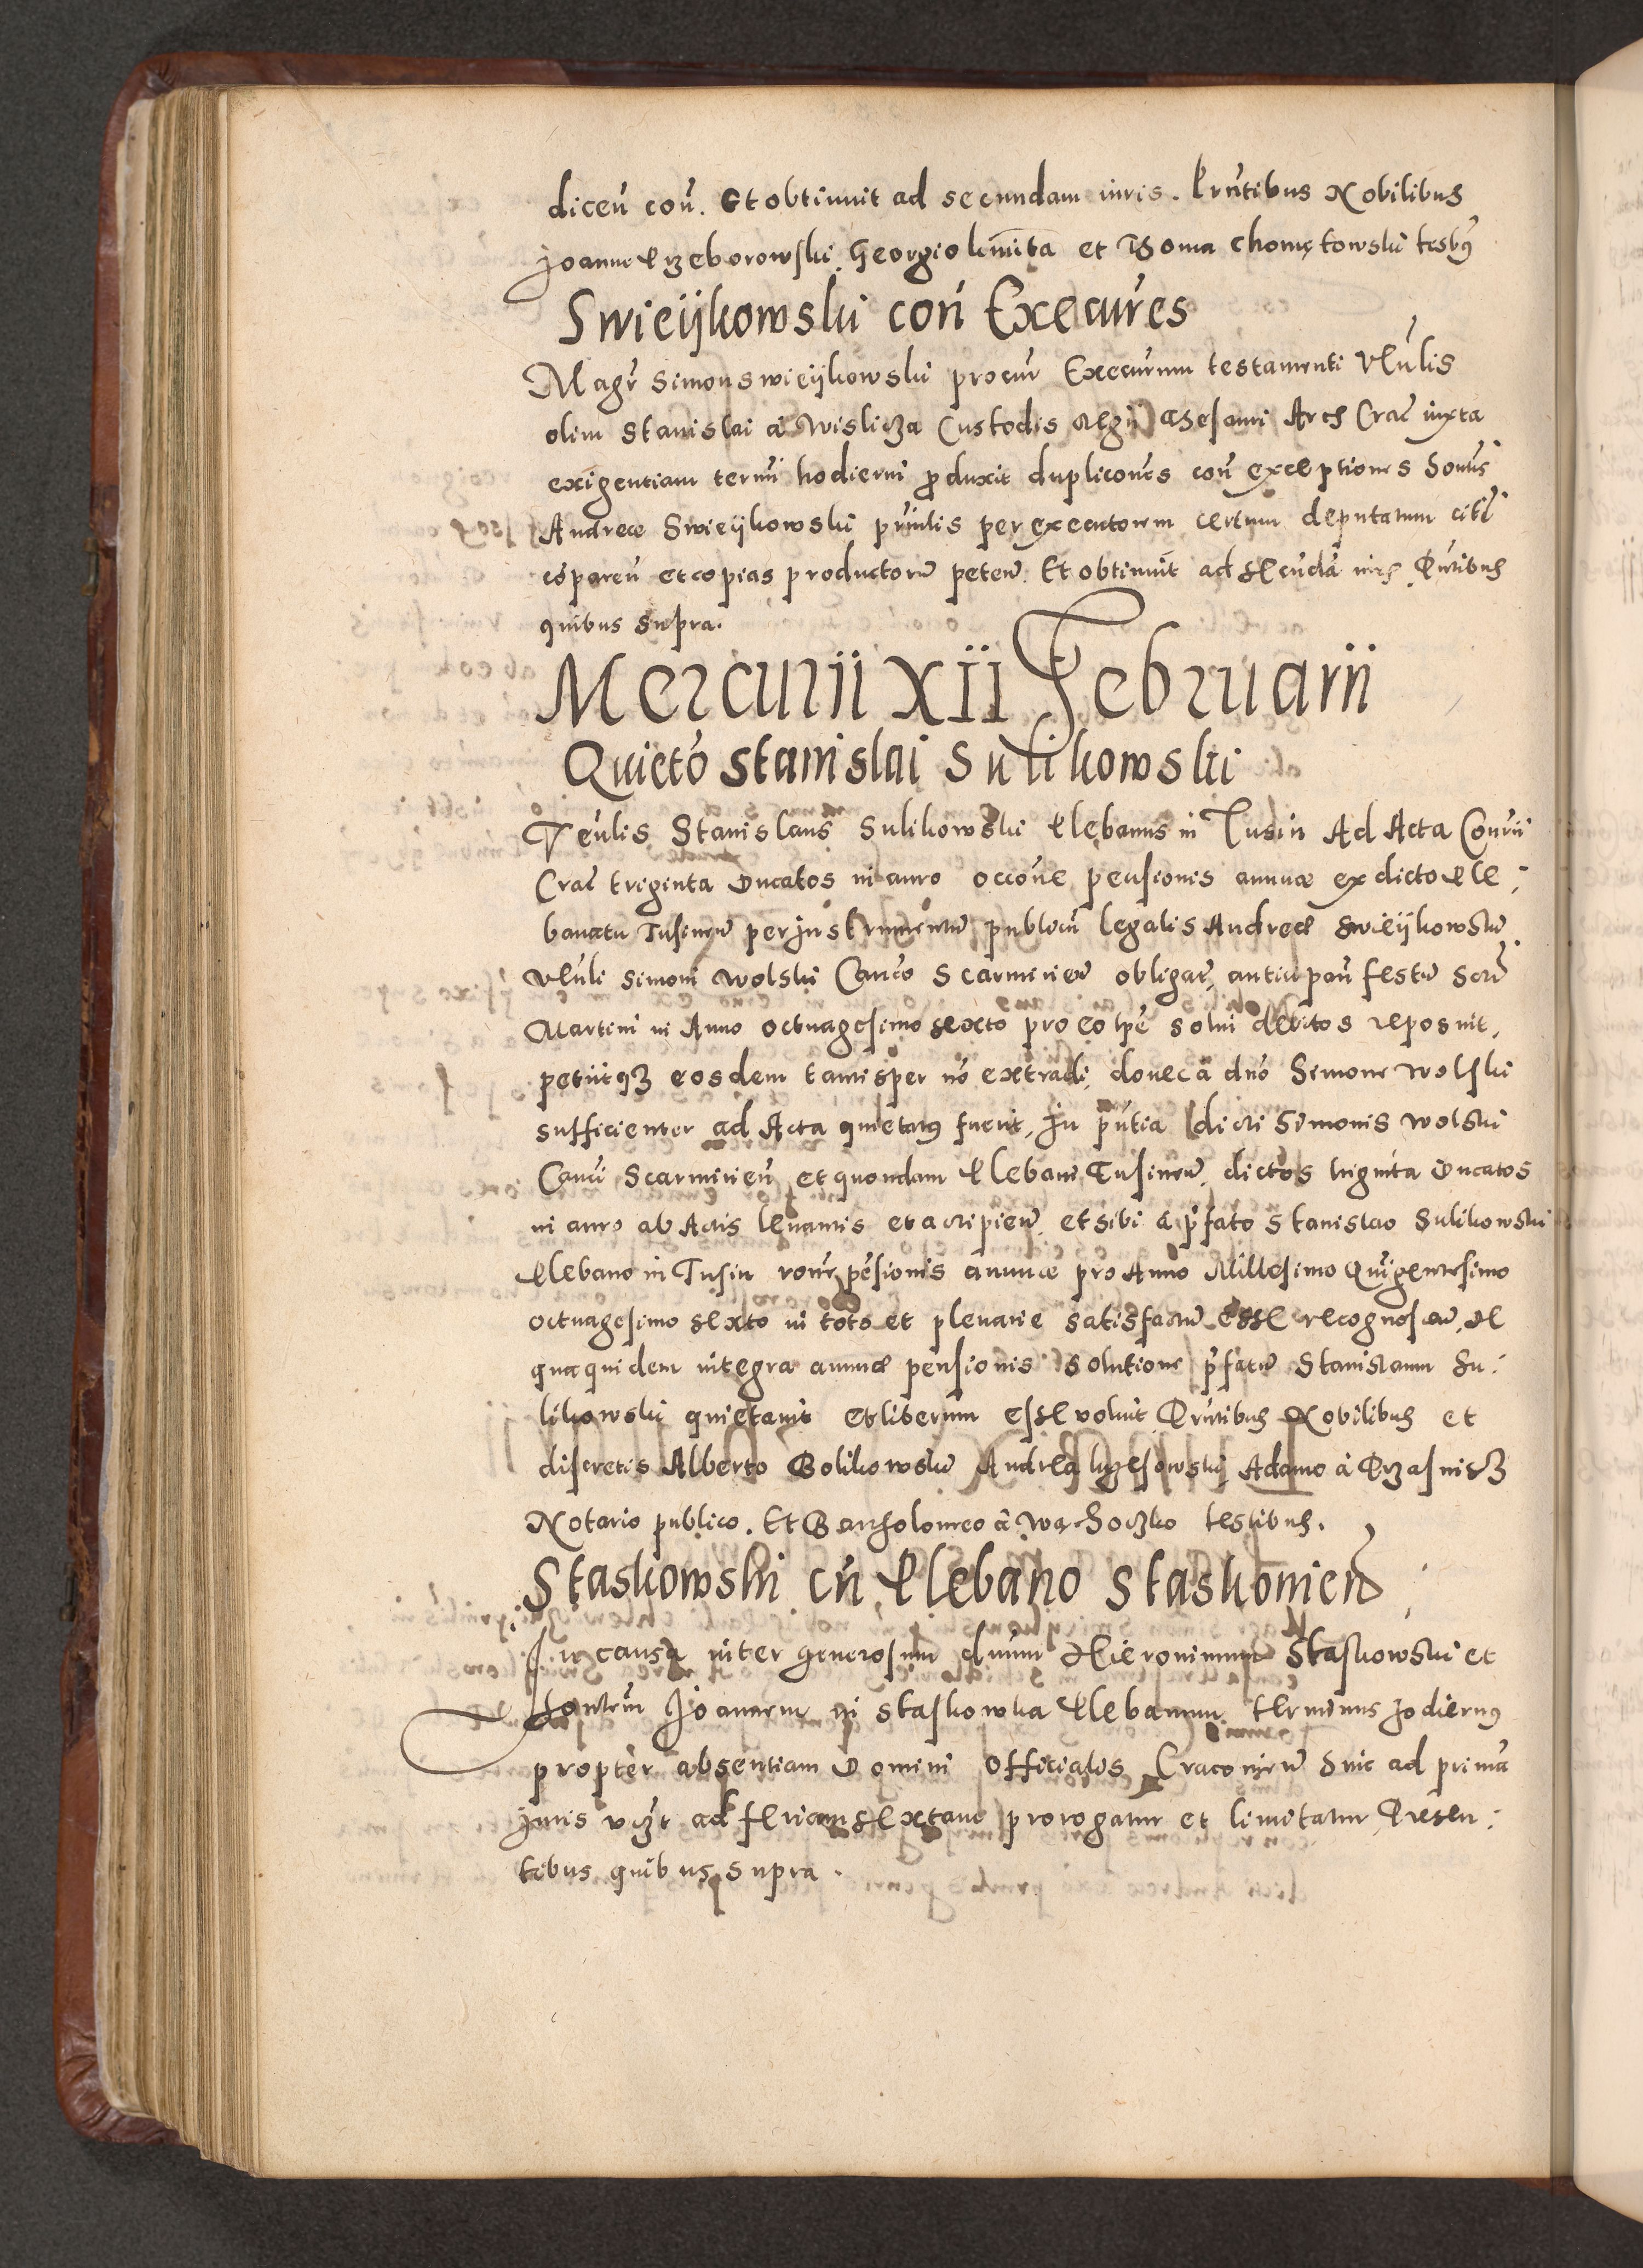 diceñ coñ. Et obtinuit ad secundam iuris. Prñtibus Nobilibus
Joanne Przeborowski, Georgio et Thoma Chomętowski testibus
Swieijkowski coñ Execũres
Magr̃ Simon Swieijkowski procur̃ Execũrum testamenti Vñlis
olim Stanislai à Wislicza Custodis Regii Thesauri Arcis Crac̃ iuxta
exigentiam termĩ hodierni produxit duplicoñes coñ exceptiones
Andreæ Swieijkowski per executorem certum deputatum
cõpareñ et copias productorũ peteñ. Et obtinuit ad secũdã iuris Prñtibus
quibus supra.
Mercurii XII Februarii
Quietõ Stanislai Sulikowski
Veñlis Stanislaus Sulikowski Plebanus in Tusin Ad Acta
Crac̃ triginta Ducatos in auro occoñe pensionis annuæ ex dicto Ple:
banatu Tusineñ per Instrumentũ publicũ legalis Andreæ Swieijkowski
Vñli Simoni Wolski Cañco Scarmirieñ obligat̃, anticipañ festũ Scti
Martini in Anno octuagesimo sexto pro eo tp̃e solui debitos reposuit,
petiitq3 eosdem tantisper nõ extradi, donec à dño Simone Wolski
sufficienter ad Acta quietatus fuerit, In pñtia dicti Simonis Wolski
Cañci Scarmirieñ et quondam Plebani Tusineñ, dictos triginta Ducatos
in auro ab Actis leuantis et accipieñ, et sibi à p̃fato Stanislao Sulikowski
Plebano in Tusin roñe pẽsionis annuæ pro Anno Millesimo Quĩgentesimo
octuagesimo sexto in toto et plenarie satisfactũ esse recognosceñ, De
qua quidem integra annuæ pensionis solutione p̃fatũ Stanislaum Su:
likowski quietauit et liberum esse voluit Prñtibus Nobilibus et
discretis Alberto Bolikowski Andrea Adamo à Przasnisz
Notario publico. Et Bartholomeo à Wąchoczko testibus.
Staskowski cũ Plebano Staskouieñ
In causa inter generosum dñum Hieronimum Staskowski et
Joannem in Staskowka Plebanum, terminus hodiernus
propter absentiam Domini Officialis Cracouieñ huic ad primã
Juris vczt ad feriam sextam prorogatur et limitatur, Presen:
tibus quibus supra.